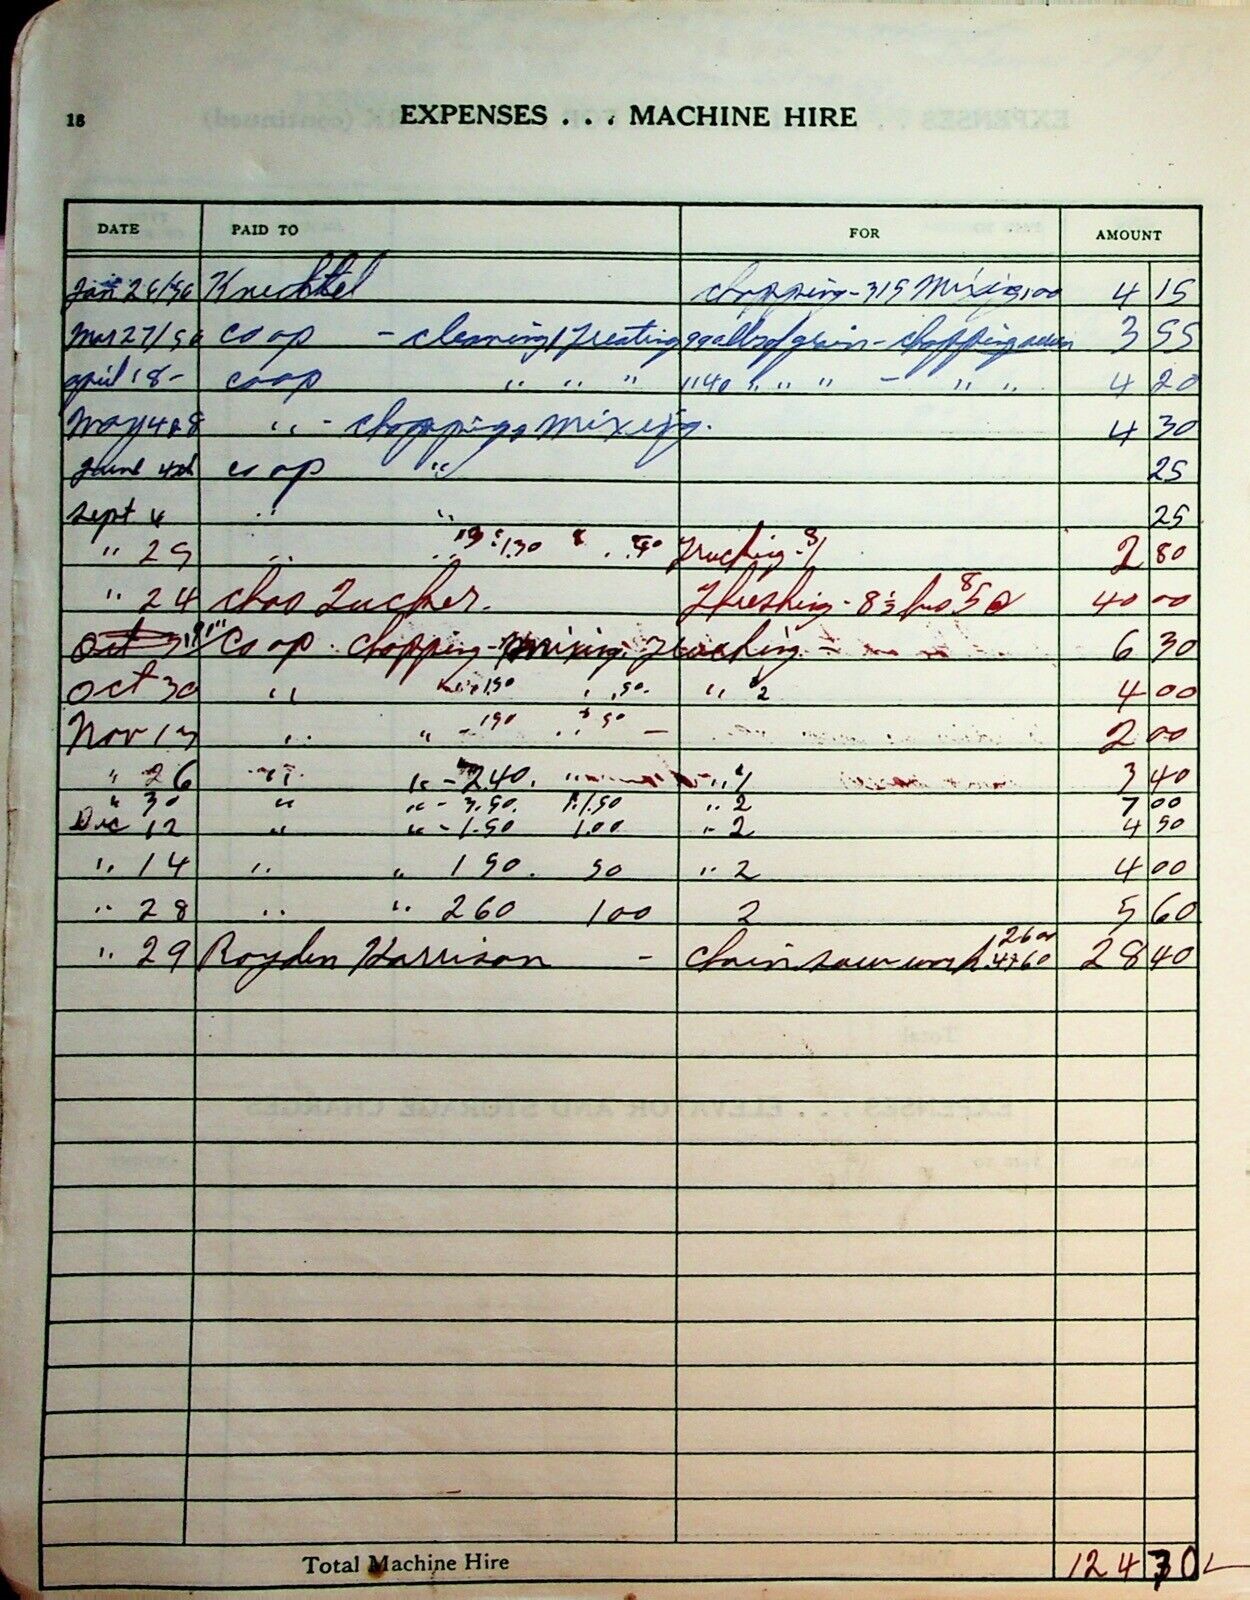 18
EXPENSES . . . MACHINE HIRE
DATE PAID TO FOR AMOUNT
Jan 26/56 Knechtel chopping - 315 mixing 100 4 15
Mar 27/56 coop - cleaning, treating of grain - chopping 3 55
april 18 - coop " " " " 40 " " " - " " 4 20
May 4 & 8 " - chopping mixing. 4 30
June 4th coop " 25
Sept. 4 " " 25
" 25 " " 1.30 .50 Trucking - $1 2 80
" 24 Chas Tucker. Threshing - 8 hrs 5 @ 40 00
Oct Co op chopping - mixing. Trucking - 6 30
Oct 30 " 1.50 " .50 - " $2 4 00
Nov 13 " " - 150 " 50 - 2 00
" 26 " " - 2.40. " " 1 3 40
" 30 " " - 3.50. 1.50 " 2 7 00
Dec 12 " " - 1.50 1.00 " 2 4 50
" 14 " " 150. 50 " 2 4 00
" 28 " " 260 100 2 5 60
" 29 Royden Harrison - chain saw work 28 40
Total Machine Hire 124 30